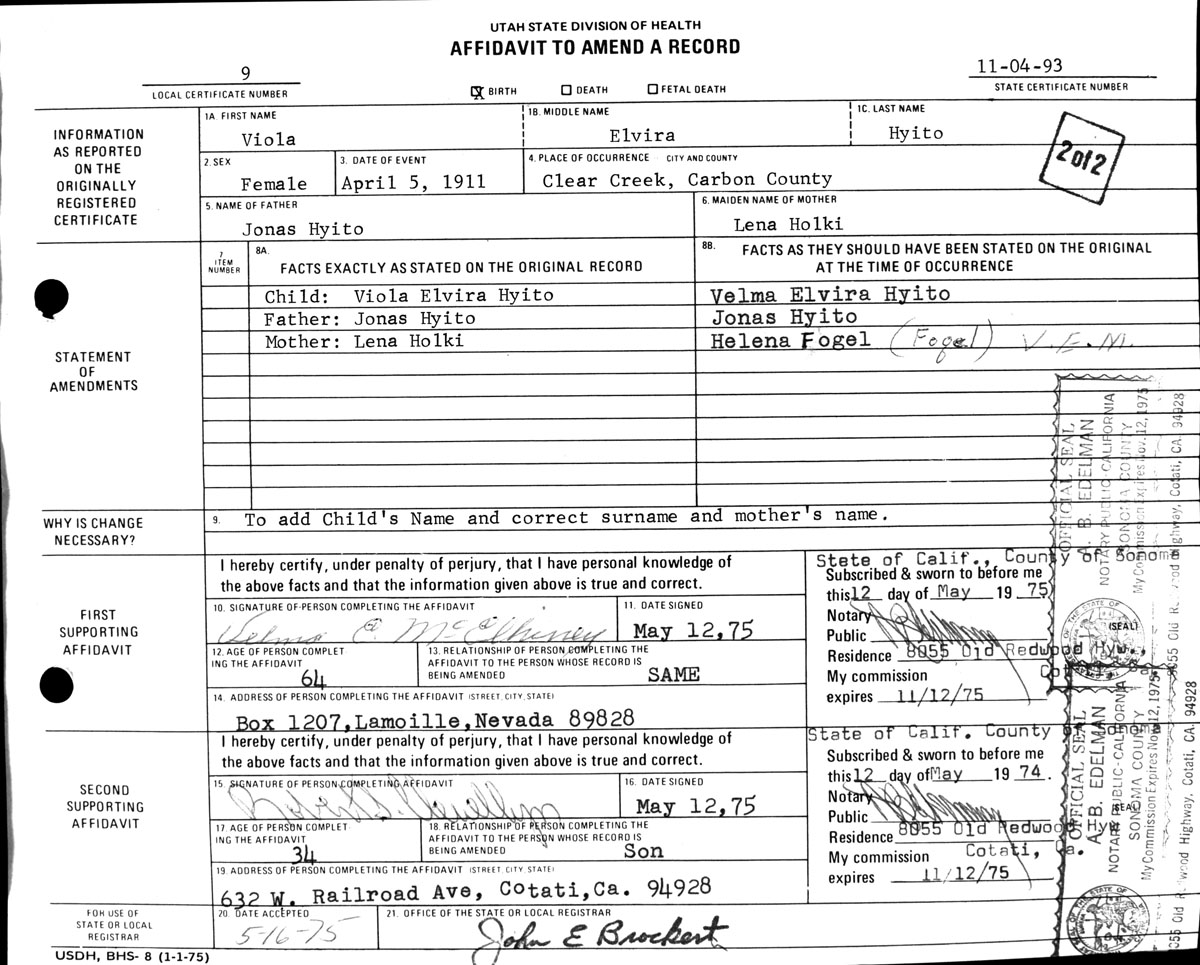 UTAH STATE DIVISION OF HEALTH
AFFIDAVIT TO AMEND A RECORD
9
LOCAL CERTIFICATE NUMBER
X BIRTH DEATH FETAL DEATH
11-04-93
STATE CERTIFICATE NUMBER
2 of 2
INFORMATION
AS REPORTED
ON THE
ORIGINALLY
REGISTERED
CERTIFICATE
1A. FIRST NAME
Viola
1B. MIDDLE NAME
Elvira
1C. LAST NAME
Hyito
2. SEX
Female
3. DATE OF EVENT
April 5, 1911
4. PLACE OF OCCURRENCE - CITY AND COUNTY
Clear Creek, Carbon County
5. NAME OF FATHER
Jonas Hyito
6. MAIDEN NAME OF MOTHER
Lena Holki
STATEMENT
OF
AMENDMENTS
7
ITEM
NUMBER
8A.
FACTS EXACTLY AS STATED ON THE ORIGINAL RECORD
8B. FACTS AS THEY SHOULD HAVE BEEN STATED ON THE ORIGINAL
AT THE TIME OF OCCURRENCE
Child: Viola Elvira Hyito
Velma Elvira Hyito
Father: Jonas Hyito
Jonas Hyito
Mother: Lena Holki
Helena Fogel (Fogel) V.E.M.
WHY IS CHANGE
NECESSARY?
9. To add Child's Name and correct surname and mother's name.
FIRST
SUPPORTING
AFFIDAVIT
I hereby certify, under penalty of perjury, that I have personal knowledge of
the above facts and that the information given above is true and correct.
10. SIGNATURE OF PERSON COMPLETING THE AFFIDAVIT
Velma E McElhiney
11. DATE SIGNED
May 12,75
12. AGE OF PERSON COMPLET
ING THE AFFIDAVIT
64
13. RELATIONSHIP OF PERSON COMPLETING THE
AFFIDAVIT TO THE PERSON WHOSE RECORD IS
BEING AMENDED
SAME
14. ADDRESS OF PERSON COMPLETING THE AFFIDAVIT (STREET, CITY, STATE)
Box 1207,Lamoille,Nevada 89828
State of Calif., County of Sonoma
Subscribed & sworn to before me
this 12 day of May 19 75
Notary
Public
(SEAL)
Residence 8055 Old Redwood Hyw.,
My commission
expires 11/12/75
SECOND
SUPPORTING
AFFIDAVIT
I hereby certify, under penalty of perjury, that I have personal knowledge of
the above facts and that the information given above is true and correct.
15. SIGNATURE OF PERSON COMPLETING AFFIDAVIT
16. DATE SIGNED
May 12,75
17. AGE OF PERSON COMPLET
ING THE AFFIDAVIT
34
18. RELATIONSHIP OF PERSON COMPLETING THE
AFFIDAVIT TO THE PERSON WHOSE RECORD IS
BEING AMENDED
Son
19. ADDRESS OF PERSON COMPLETING THE AFFIDAVIT (STREET, CITY, STATE)
632 W. Railroad Ave, Cotati,Ca. 94928
State of Calif. County of Sonoma
Subscribed & sworn to before me
this 12 day of May 19 74.
Notary
Public
(SEAL)
Residence 8055 Old Redwood Hyw
My commission Cotati, Ca.
expires 11/12/75
OFFICIAL SEAL
A. B. EDELMAN
NOTARY PUBLIC-CALIFORNIA
SONOMA COUNTY
My Commission Expires Nov. 12, 1975
8055 Old Redwood Highway, Cotati, CA. 94928
OFFICIAL SEAL
A. B. EDELMAN
NOTARY PUBLIC-CALIFORNIA
SONOMA COUNTY
My Commission Expires Nov. 12, 1975
8055 Old Redwood Highway, Cotati, CA. 94928
FOR USE OF
STATE OR LOCAL
REGISTRAR
20. DATE ACCEPTED
5-16-75
21. OFFICE OF THE STATE OR LOCAL REGISTRAR
John E Brockert
USDH, BHS- 8 (1-1-75)